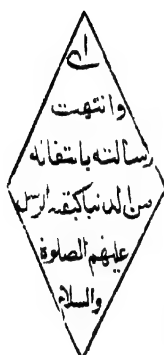 اى
وانتهت
رسالته بانتقاله
من الدنيا كبقية الرسل
عليهم الصلوة
والسلام